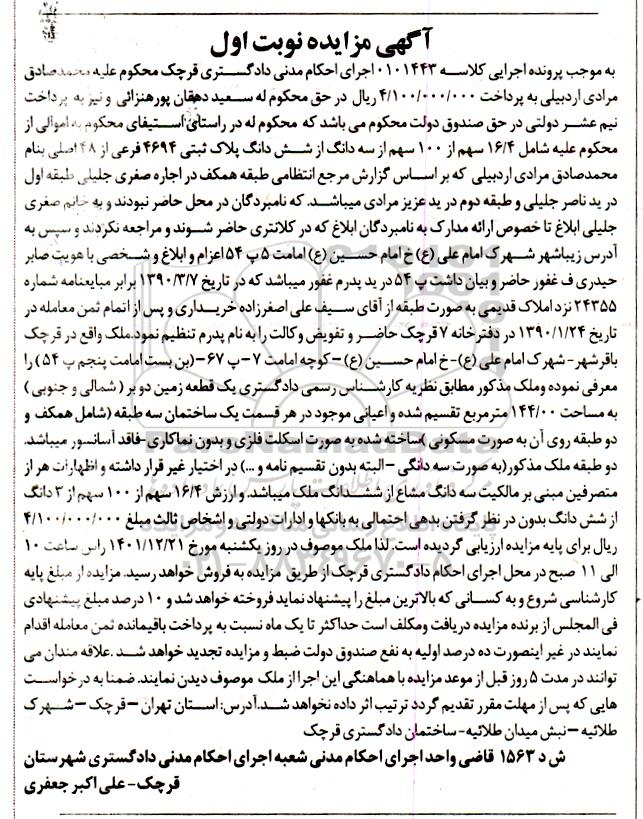 آگهی مزایده نوبت اول
به موجب پرونده اجرایی کلاسه ۰۱۰۱۴۴۳ اجرای احکام مدنی دادگستری قرچک محکوم علیه محمدصادق
مرادی اردبیلی به پرداخت ۴/۱۰۰/۰۰۰/۰۰۰ ریال در حق محکوم له سعید دهقان پورهنزائی و نیز به پرداخت
نیم عشر دولتی در حق صندوق دولت محکوم می باشد که محکوم له در راستای استیفای محکوم به اموالی از
محکوم علیه شامل ۱۶/۴ سهم از ۱۰۰ سهم از سه دانگ از شش دانگ پلاک ثبتی ۴۶۹۴ فرعی از ۴۸ اصلی بنام
محمدصادق مرادی اردبیلی که بر اساس گزارش مرجع انتظامی طبقه همکف در اجاره صغری جلیلی طبقه اول
در ید ناصر جلیلی و طبقه دوم در ید عزیز مرادی میباشد. که نامبردگان در محل حاضر نبودند و به خانم صغری
جلیلی ابلاغ تا خصوص ارائه مدارک به نامبردگان ابلاغ که در کلانتری حاضر شوند و مراجعه نکردند و سپس به
آدرس زیباشهر شهرک امام علی (ع) خ امام حسین (ع) امامت ۵ پ ۵۴ اعزام و ابلاغ و شخصی با هویت صابر
حیدری ف غفور حاضر و بیان داشت پ ۵۴ در ید پدرم غفور میباشد که در تاریخ ۱۳۹۰/۳/۷ برابر مبایعنامه شماره
۲۴۳۵۵ نزد املاک قدیمی به صورت طبقه از آقای سیف علی اصغرزاده خریداری و پس از اتمام ثمن معامله در
تاریخ ۱۳۹۰/۱/۲۴ در دفترخانه ۷ قرچک حاضر و تفویض وکالت را به نام پدرم تنظیم نمود.ملک واقع در قرچک
باقرشهر- شهرک امام علی (ع)- خ امام حسین (ع) – کوچه امامت ۷- پ ۶۷- (بن بست امامت پنجم پ ۵۴) را
معرفی نموده وملک مذکور مطابق نظریه کارشناس رسمی دادگستری یک قطعه زمین دو بر ( شمالی و جنوبی )
به مساحت ۱۴۴/۰۰ مترمربع تقسیم شده و اعیانی موجود در هر قسمت یک ساختمان سه طبقه (شامل همکف و
دو طبقه روی آن به صورت مسکونی )ساخته شده به صورت اسکلت فلزی و بدون نماکاری-فاقد آسانسور میباشد.
دو طبقه ملک مذکور(به صورت سه دانگی – البته بدون تقسیم نامه و ...) در اختیار غیر قرار داشته و اظهارات هر از
متصرفین مبنی بر مالکیت سه دانگ مشاع از ششدانگ ملک میباشد. و ارزش ۱۶/۴ سهم از ۱۰۰ سهم از ۳ دانگ
از شش دانگ بدون در نظر گرفتن بدهی احتمالی به بانکها و ادارات دولتی و اشخاص ثالث مبلغ ۴/۱۰۰/۰۰۰/۰۰۰
ریال برای پایه مزایده ارزیابی گردیده است. لذا ملک موصوف در روز یکشنبه مورخ ۱۴۰۱/۱۲/۲۱ راس ساعت ۱۰
الی ۱۱ صبح در محل اجرای احکام دادگستری قرچک از طریق مزایده به فروش خواهد رسید. مزایده از مبلغ پایه
کارشناسی شروع و به کسانی که بالاترین مبلغ را پیشنهاد نماید فروخته خواهد شد و ۱۰ درصد مبلغ پیشنهادی
فی المجلس از برنده مزایده دریافت ومکلف است حداکثر تا یک ماه نسبت به پرداخت باقیمانده ثمن معامله اقدام
نمایند در غیر اینصورت ده درصد اولیه به نفع صندوق دولت ضبط و مزایده تجدید خواهد شد .علاقه مندان می
توانند در مدت ۵ روز قبل از موعد مزایده با هماهنگی این اجرا از ملک موصوف دیدن نمایند. ضمنا به درخواست
هایی که پس از مهلت مقرر تقدیم گردد ترتیب اثر داده نخواهد شد.آدرس: استان تهران – قرچک – شهرک
طلائیه – نبش میدان طلائیه- ساختمان دادگستری قرچک
ش د ۱۵۶۳ قاضی واحد اجرای احکام مدنی شعبه اجرای احکام مدنی دادگستری شهرستان
قرچک- علی اکبر جعفری
ParsNamadData
۰۲۱-۸۸۳۴۹۶۷۰-۵